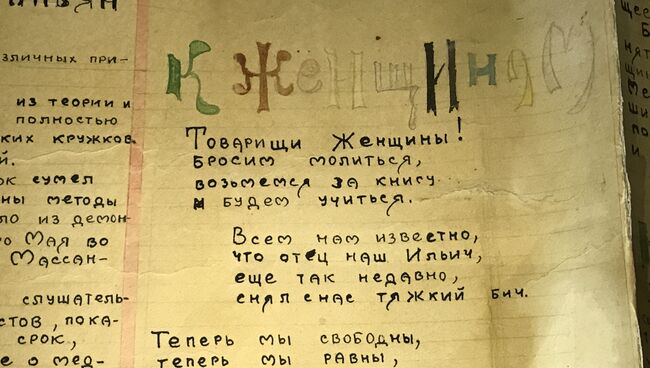 зличных при-
из теории и
полностью
ких кружков.
й.
ок сумел
ны методы
ло из демон-
о Мая во
Массан-
слушатель-
стов, пока-
срок,
е о мед-
К Женщинам
Товарищи Женщины!
бросим молиться,
возьмемся за книгу
и будем учиться.
Всем нам известно,
что отец наш Ильич,
еще так недавно,
снял с нас тяжкий бич.
Теперь мы свободны,
теперь мы равны,